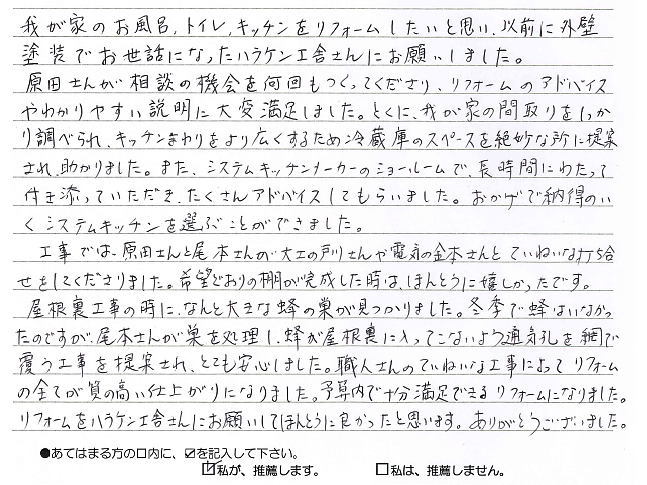 我が家のお風呂、トイレ、キッチンをリフォームしたいと思い、以前に外壁
塗装でお世話になったハラケン工舎さんにお願いしました。
原田さんが相談の機会を何回もつくってくださり、リフォームのアドバイス
やわかりやすい説明に大変満足しました。とくに、我が家の間取りをしっか
り調べられ、キッチンまわりをより広くするため冷蔵庫のスペースを絶妙な所に提案
され、助かりました。また、システムキッチンメーカーのショールームで、長時間にわたって
付き添っていただき、たくさんアドバイスしてもらいました。おかげで納得のい
くシステムキッチンを選ぶことができました。
工事では、原田さんと尾本さんが大工の戸川さんや電気の金本さんとていねいな打ち合
せをしてくださりました。希望どおりの棚が完成した時は、ほんとうに嬉しかったです。
屋根裏工事の時に、なんと大きな蜂の巣が見つかりました。冬季で蜂はいなかっ
たのですが、尾本さんが巣を処理し、蜂が屋根裏に入ってこないよう通気孔を網で
覆う工事を提案され、とても安心しました。職人さんのていねいな工事によってリフォーム
の全てが質の高い仕上がりになりました。予算内で十分満足できるリフォームになりました。
リフォームをハラケン工舎さんにお願いしてほんとうに良かったと思います。ありがとうございました。
●あてはまる方の口内に、☑を記入して下さい。
☑私が、推薦します。 □私は、推薦しません。